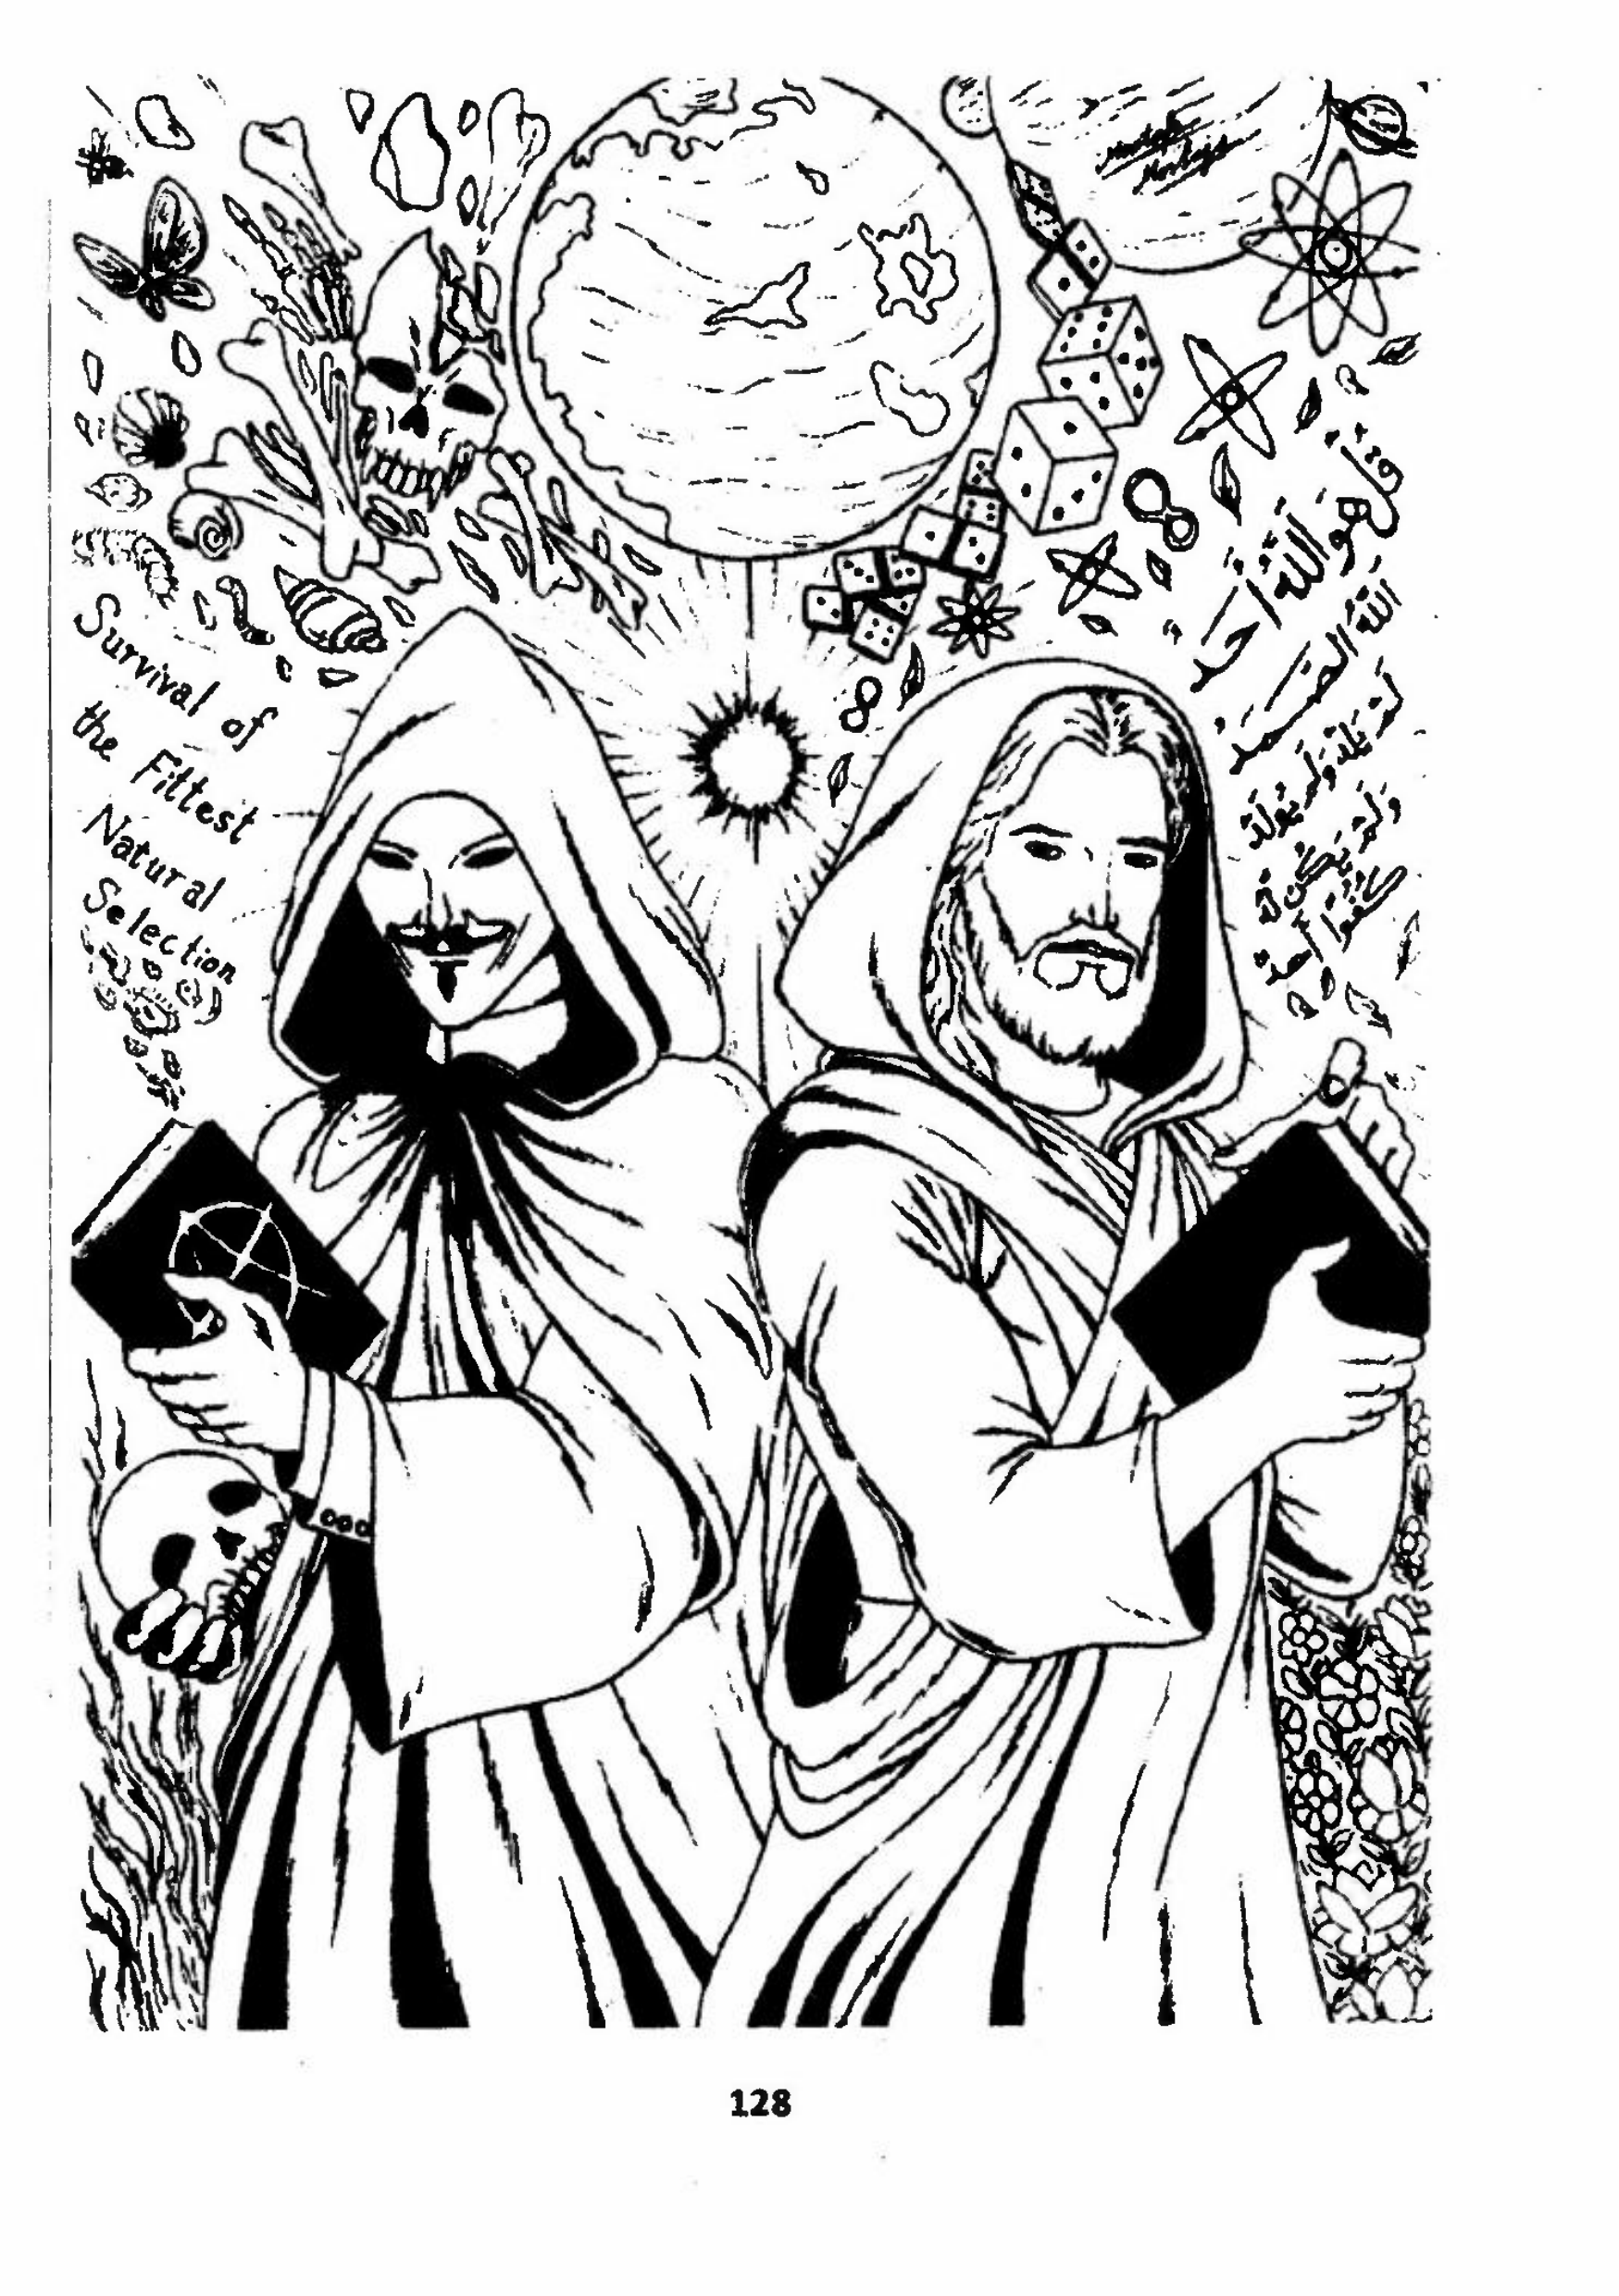 Survival of
the Fittest
Natural
Selection
قُلْ هُوَ اللَّهُ أَحَدٌ
اللَّهُ الصَّمَدُ
لَمْ يَلِدْ وَلَمْ يُولَدْ
وَلَمْ يَكُن لَّهُ
كُفُوًا أَحَدٌ
128